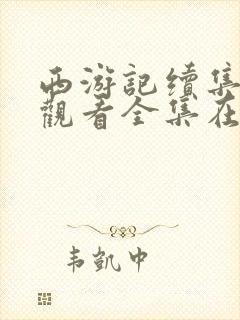 西游記續集
觀看全集在
韦凱中